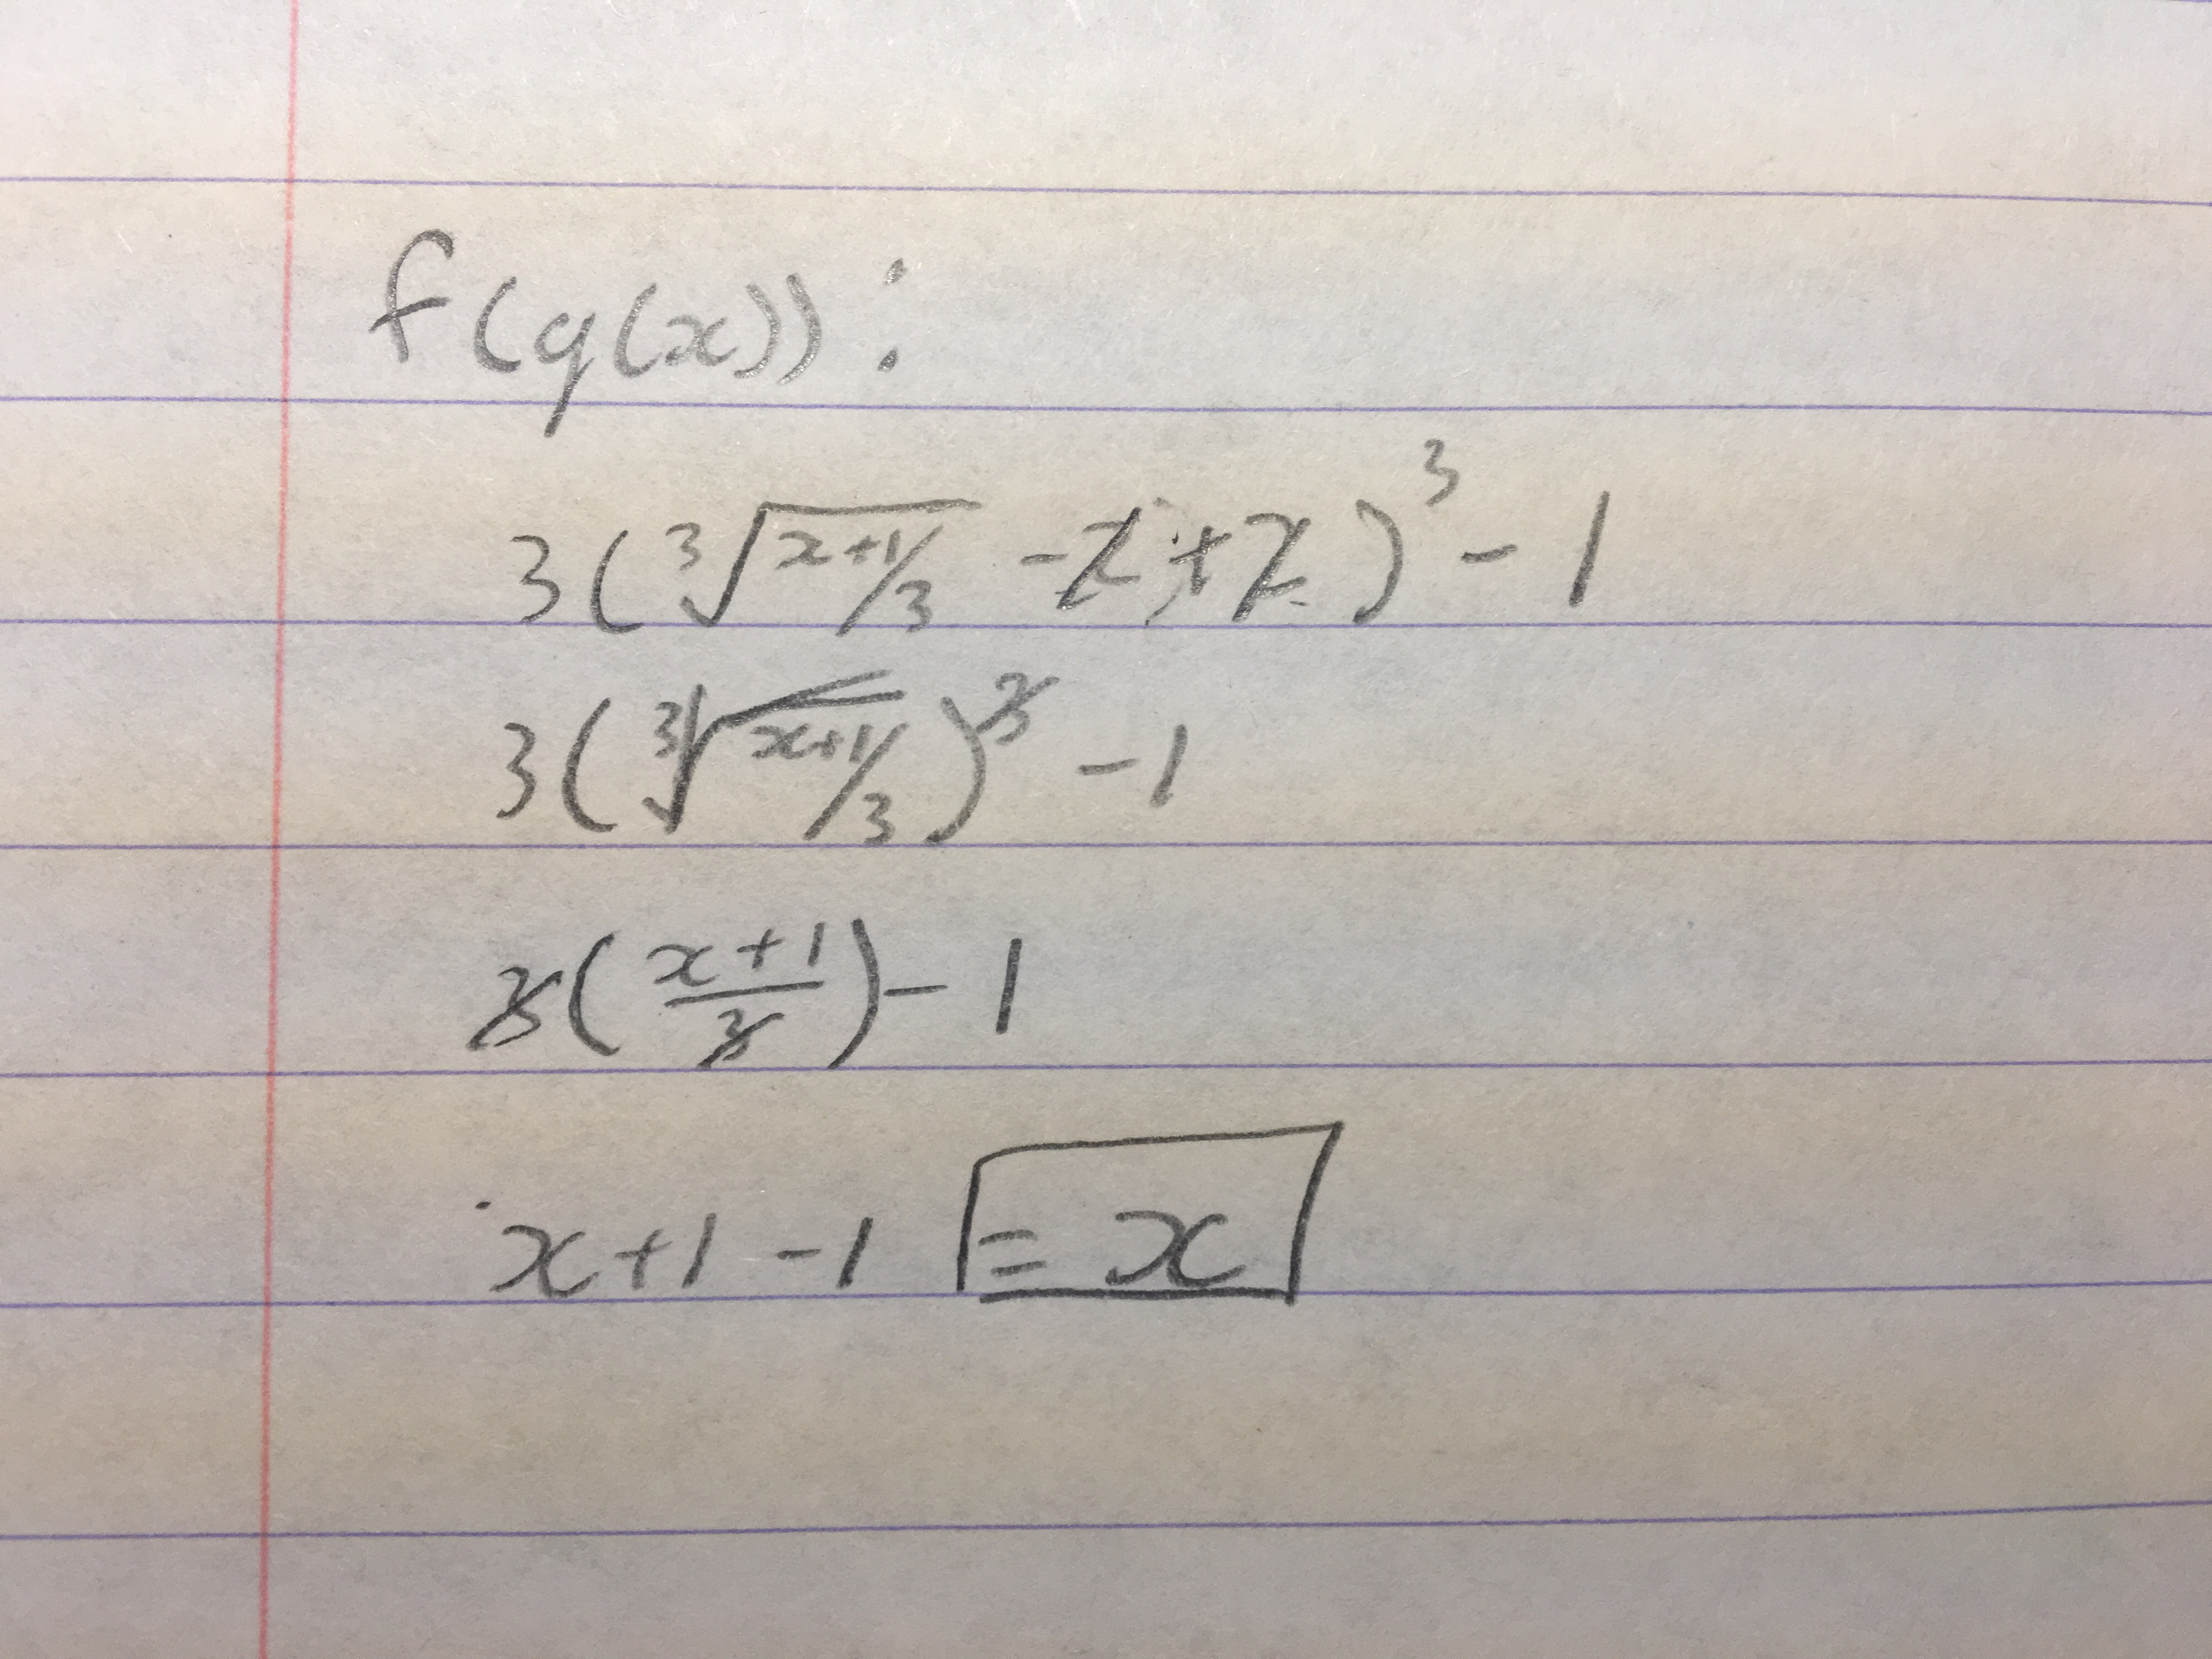 f(g(x)):
3(∛(x+1/3) - 2 + 2)³ - 1
3(∛(x+1/3))³ - 1
3(x+1/3) - 1
x+1 - 1 = x